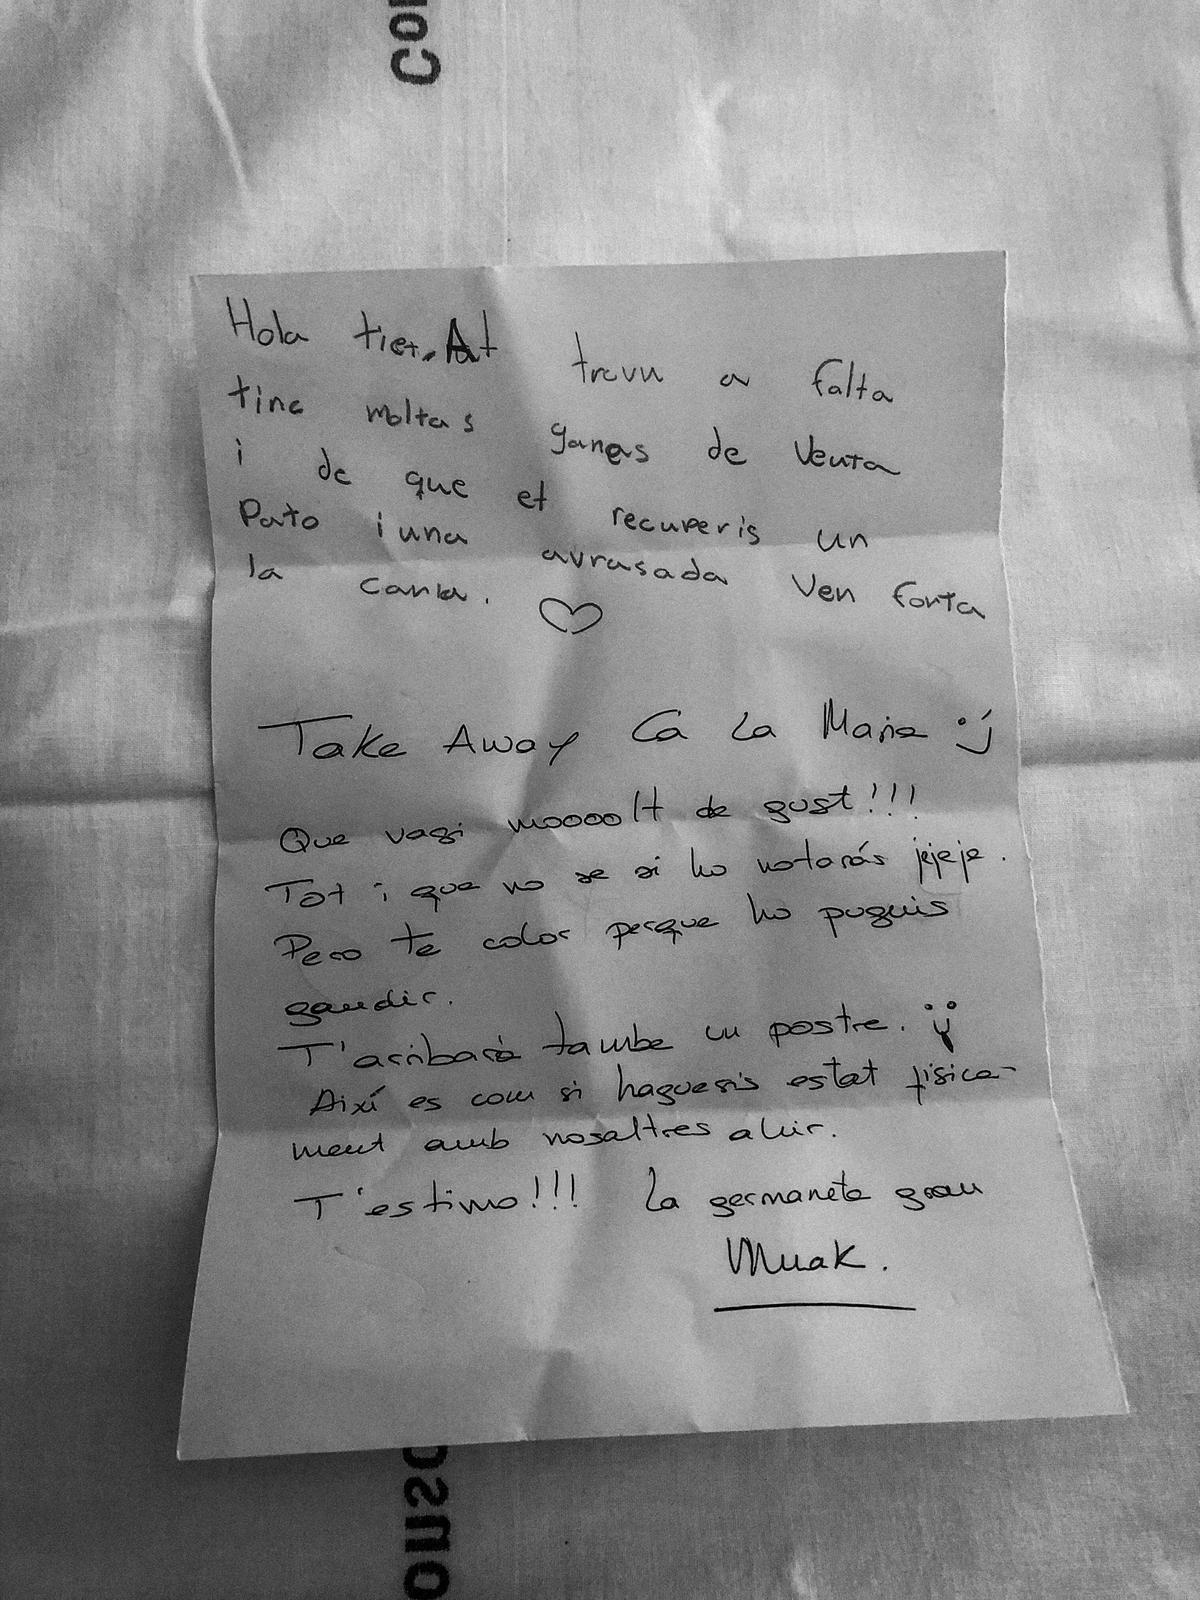 Con
Hola tiet. At travu a falta
tinc moltas ganas de veura
i de que et recuperis un
Pato i una avrasada ven forta
la canla.
Take Away Ca La Maria :)
Que vagi moooolt de gust!!!
Tot i que no se si ho notaràs jejeje.
Pero te color perque ho puguis
gaudir.
T'arribarà tambe un postre.
Així es com si haguesis estat fisica-
ment amb nosaltres ahir.
T'estimo!!! La germaneta gran
Muak.
onsc